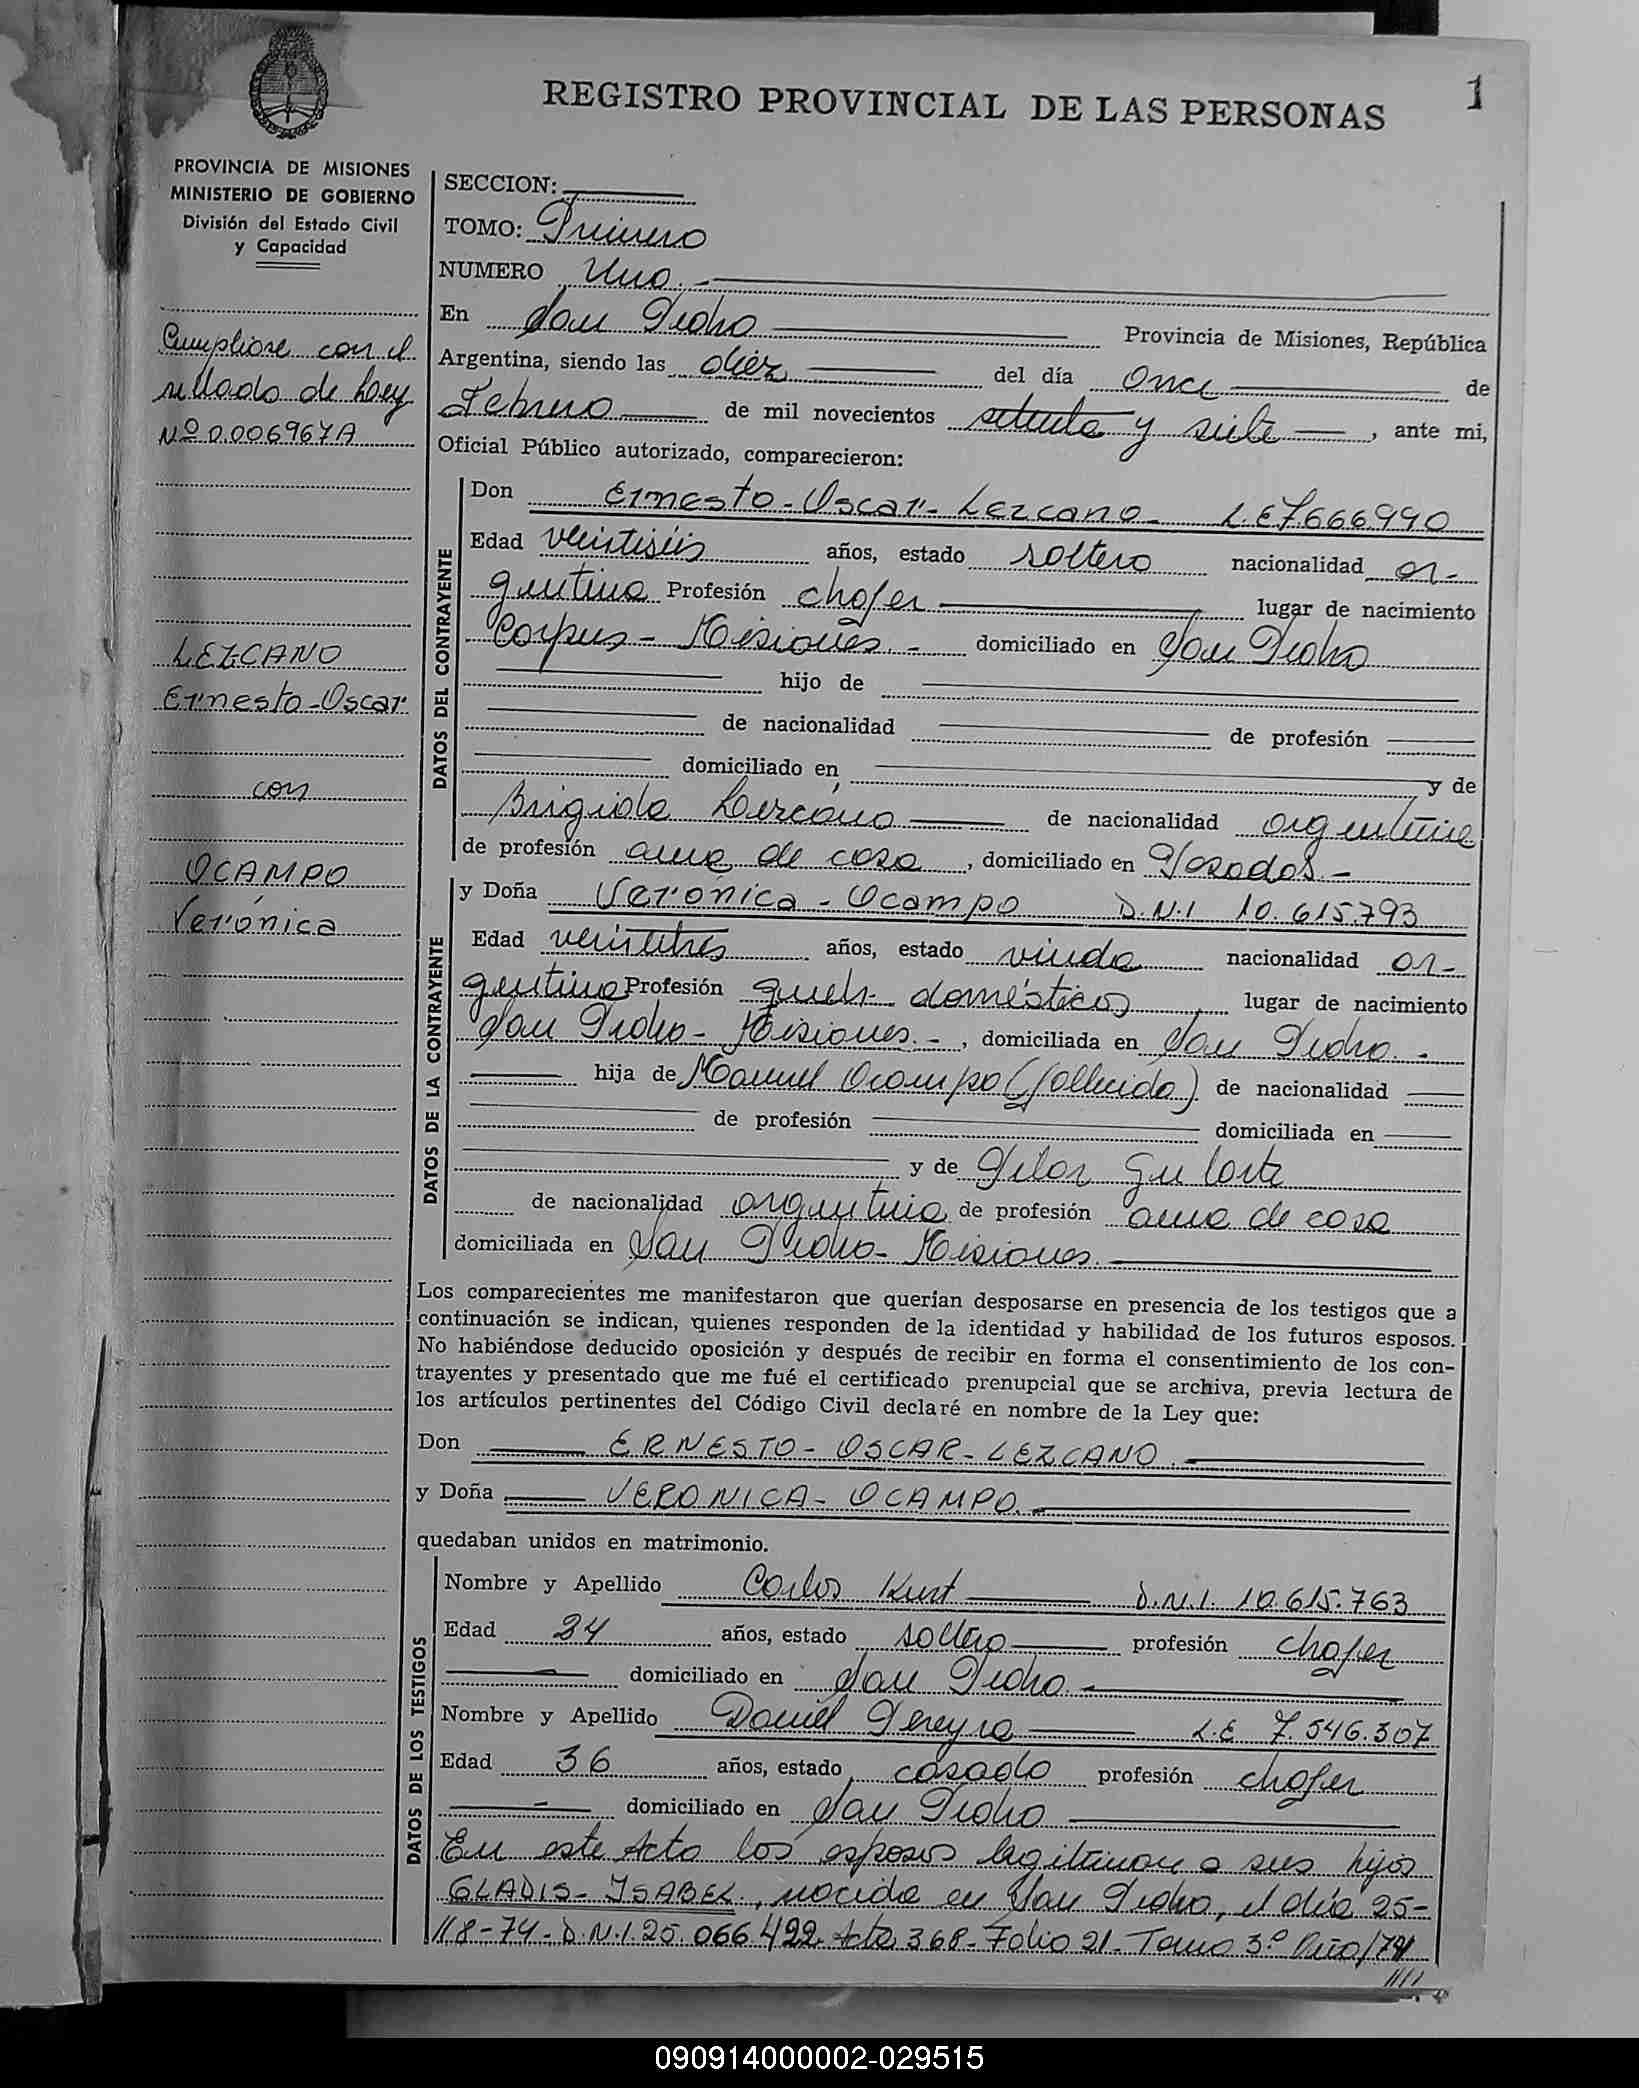 REGISTRO PROVINCIAL DE LAS PERSONAS
1
PROVINCIA DE MISIONES
MINISTERIO DE GOBIERNO
División del Estado Civil
y Capacidad
Cumpliose con el
sellado de Ley
Nº 0.006967A
LEZCANO
Ernesto-Oscar
con
OCAMPO
Verónica
SECCION:
TOMO: Primero
NUMERO Uno.-
En San Pedro Provincia de Misiones, República
Argentina, siendo las diez del día once de
Febrero de mil novecientos setenta y siete, ante mi,
Oficial Público autorizado, comparecieron:
DATOS DEL CONTRAYENTE
Don Ernesto-Oscar-Lezcano- L.E 7.666.990
Edad veintiséis años, estado soltero nacionalidad ar-
gentina Profesión chofer lugar de nacimiento
Corpus-Misiones.- domiciliado en San Pedro
hijo de
de nacionalidad de profesión
domiciliado en, y de
Brigida Lezcano de nacionalidad argentina
de profesión ama de casa, domiciliado en Posadas.-
DATOS DE LA CONTRAYENTE
y Doña Verónica-Ocampo D.N.I 10.615.793
Edad veintitrés años, estado viuda nacionalidad ar-
gentina Profesión queh- domésticos lugar de nacimiento
San Pedro-Misiones.-, domiciliada en San Pedro.-
hija de Manuel Ocampo (fallecido) de nacionalidad
de profesión domiciliada en
y de Pilar
de nacionalidad argentina de profesión ama de casa
domiciliada en San Pedro-Misiones.
Los comparecientes me manifestaron que querían desposarse en presencia de los testigos que a
continuación se indican, quienes responden de la identidad y habilidad de los futuros esposos.
No habiéndose deducido oposición y después de recibir en forma el consentimiento de los con-
trayentes y presentado que me fué el certificado prenupcial que se archiva, previa lectura de
los artículos pertinentes del Código Civil declaré en nombre de la Ley que:
Don ERNESTO-OSCAR-LEZCANO.
y Doña VERONICA-OCAMPO.
quedaban unidos en matrimonio.
DATOS DE LOS TESTIGOS
Nombre y Apellido Carlos Kust D.N.I. 10.615.763
Edad 24 años, estado soltero profesión chofer
domiciliado en San Pedro.
Nombre y Apellido Daniel Pereyra L.E 7.546.307
Edad 36 años, estado casado profesión chofer
domiciliado en San Pedro
En este Acto los esposos legitiman a sus hijos
GLADIS-YSABEL, nacida en San Pedro, el día 25-
//8-74-D.N.I.25.066.422. Acta 368-Folio 21-Tomo 3º Año/74
////
090914000002-029515